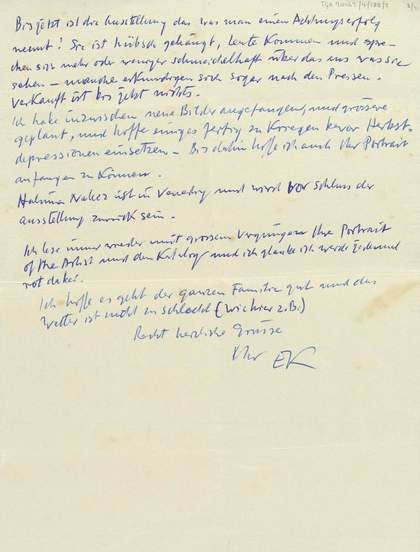 Bis jetzt ist die Ausstellung das was man einen Achtungserfolg
nennt! Sie ist hübsch gehängt, Leute kommen und spre-
chen sich mehr oder weniger schmeichelhaft über das aus was sie
sehen – manche erkundigen sich sogar nach den Preisen.
Verkauft ist bis jetzt nichts.
Ich habe inzwischen neue Bilder angefangen, und grössere
geplant, und hoffe einiges fertig zu kriegen bevor Herbst-
depressionen einsetzen – Bis dahin hoffe ich auch Ihr Portrait
anfangen zu können.
Halima Nalez ist in Venedig und wird vor Schluss der
Ausstellung zurück sein.
Ich lese immer wieder mit grossem Vergnügen Ihr Portrait
of the Artist und den Katalog und ich glaube ich werde jedesmal
rot dabei.
Ich hoffe es geht der ganzen Familie gut und das
Wetter ist nicht zu schlecht (wie hier z.B.)
Recht herzliche Grüsse
Ihr EK